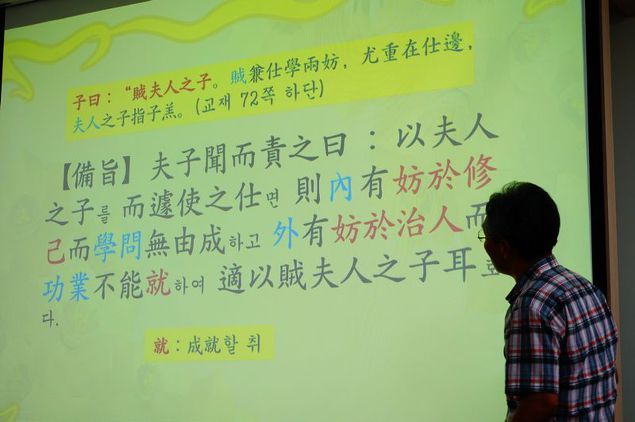 子曰：“賊夫人之子。賊兼仕學兩妨，尤重在仕邊，
夫人之子指子羔。(교재 72쪽 하단)
【備旨】 夫子聞而責之曰：以夫人
之子를 而遽使之仕면 則內有妨於修
己而學問無由成하고 外有妨於治人而
功業不能就하여 適以賊夫人之子耳
다.
就：成就할 취